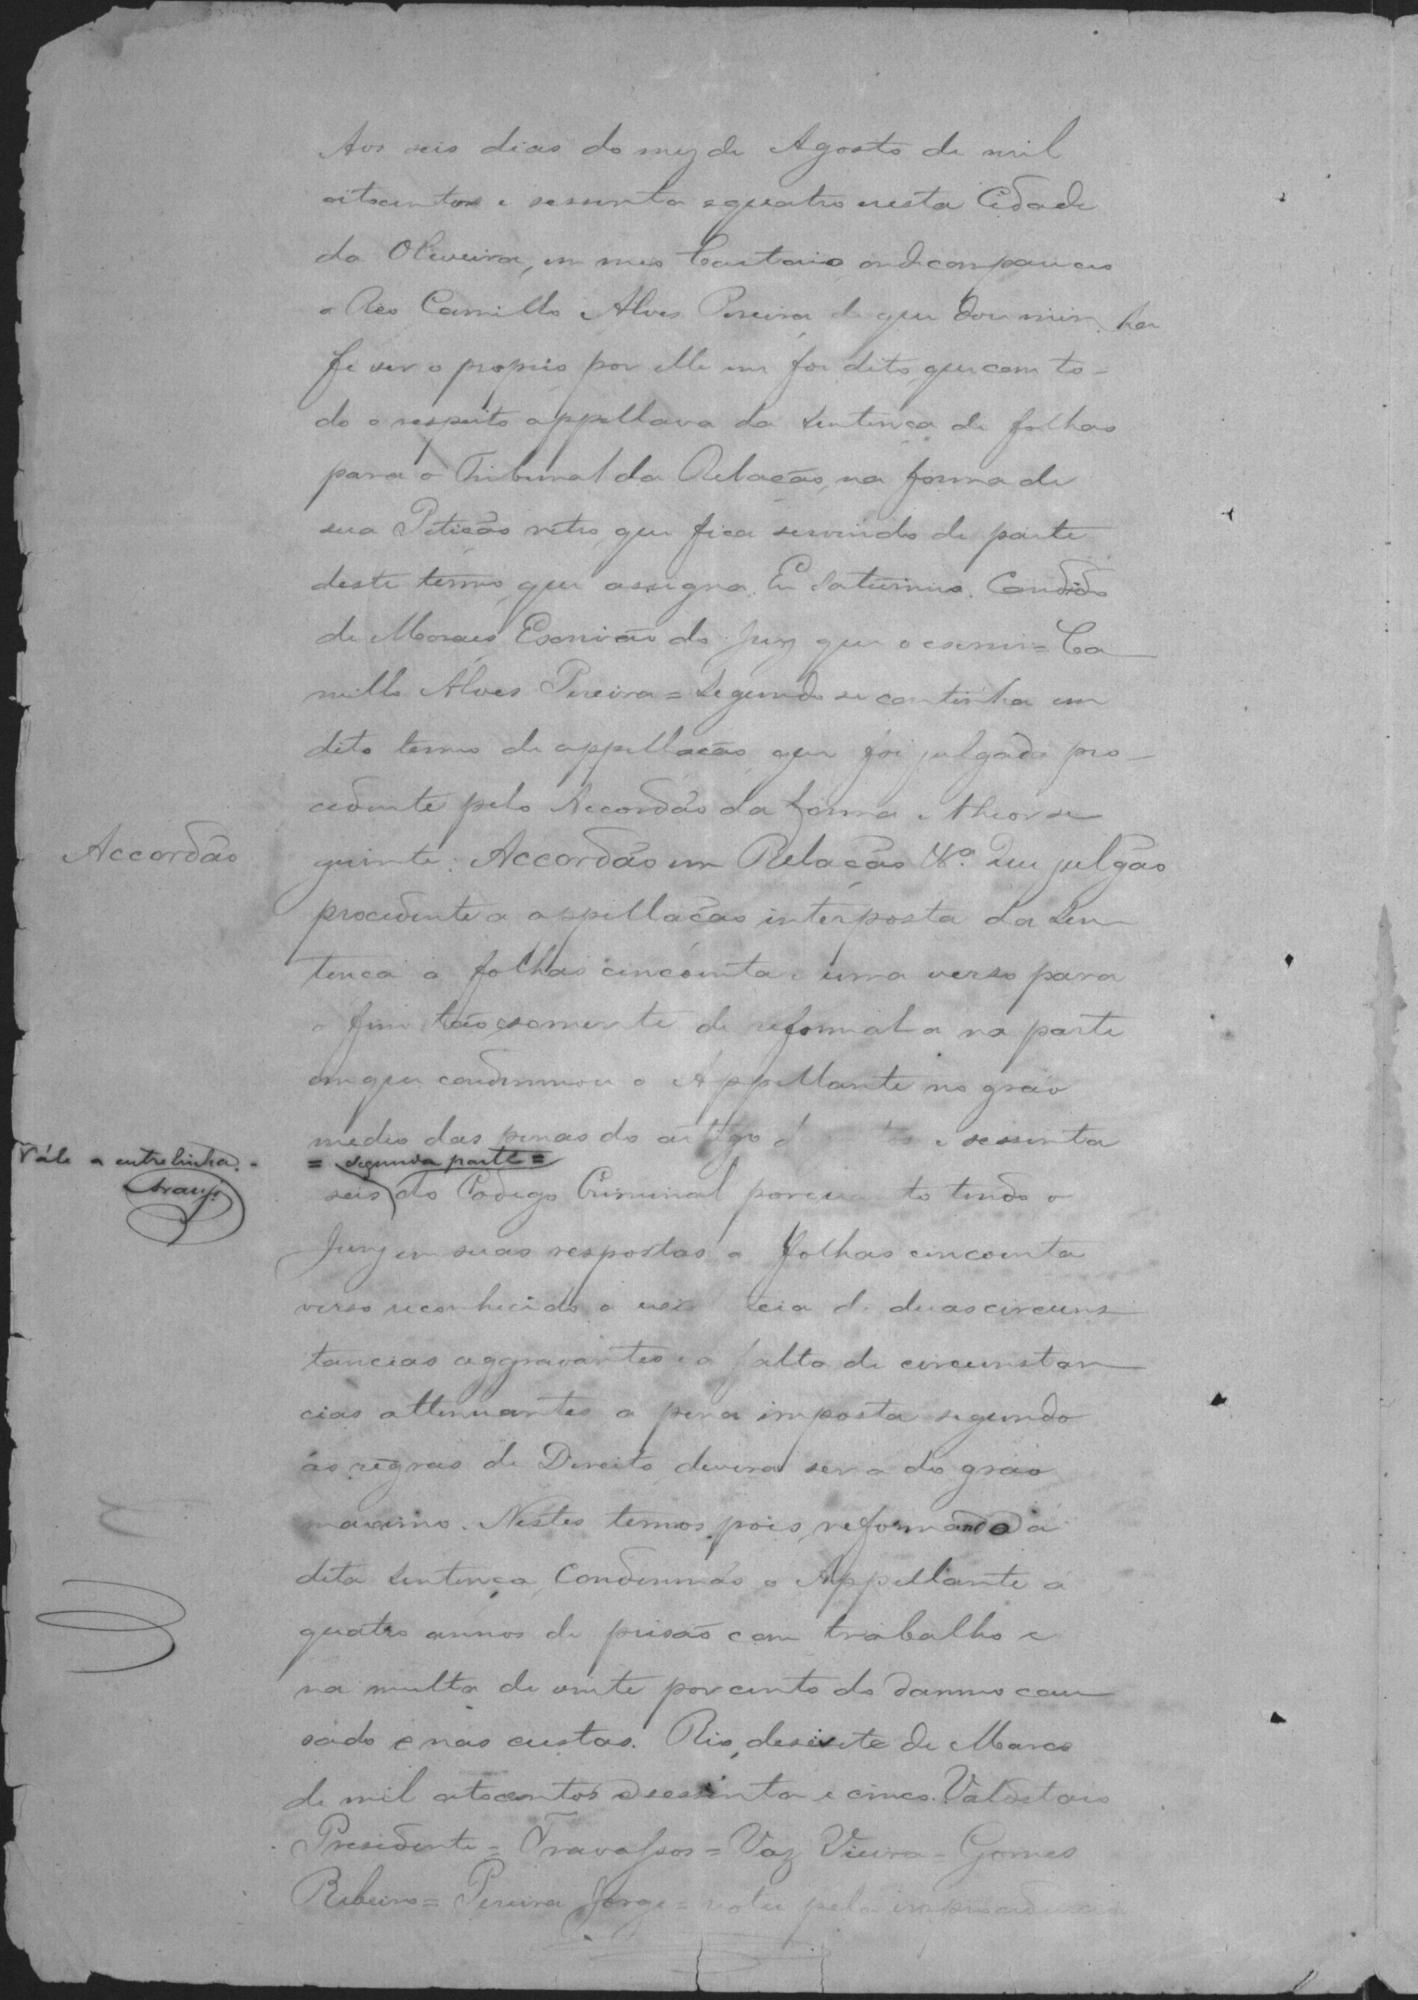 Aos seis dias do mez de Agosto de mil
oitocentos e sessenta e quatro nesta Cidade
da Oliveira, em meo Cartorio, onde compareceo
o Reo Camillo Alves Pereira de que dou minha
fé ser o proprio por elle me foi dito, que com to-
do o respeito appellava da Sentença de folhas
para o Tribunal da Relação, na forma de
sua Petição retro, que fica servindo de parte
deste termo, que assigna. Eu Saturnino Candido
de Moraes Escrivão do Jury que o escrevi = Ca
millo Alves Pereira = Segundo se continha em
dito termo de appellação que foi julgado pro-
cedente pelo Accordão da forma e theor se
Accordão
guinte: Accordão em Relação &ª. Que julgão
procedente a appellação interposta da Sen
tença a folhas cincoenta e uma verso para
o fim tão somente de reformal a na parte
em que condemnou o Appellante no gráo
medio das penas do artigo e sessenta
Vále a entrelinha.
Araujo
= segunda parte =
seis do Codigo Criminal porquanto tendo o
Jury em suas respostas a folhas cincoenta
verso reconhecido a de duas circuns
tancias aggravantes e a falta de circunstan
cias attenuantes a pena imposta segundo
as regras de Direito devera ser a do gráo
maximo. Nestes termos, pois, reformada a
dita Sentença, Condemnão o Appellante a
quatro annos de prisão com trabalho e
na multa de vinte por cento do damno cau
sado e nas custas. Rio, desisete de Março
de mil oitocentos e sessenta e cinco. Valdetaro
Presidente = Travassos = Vaz Vieira = Gomes
Ribeiro = Pereira Jorge = votei pela improcedencia